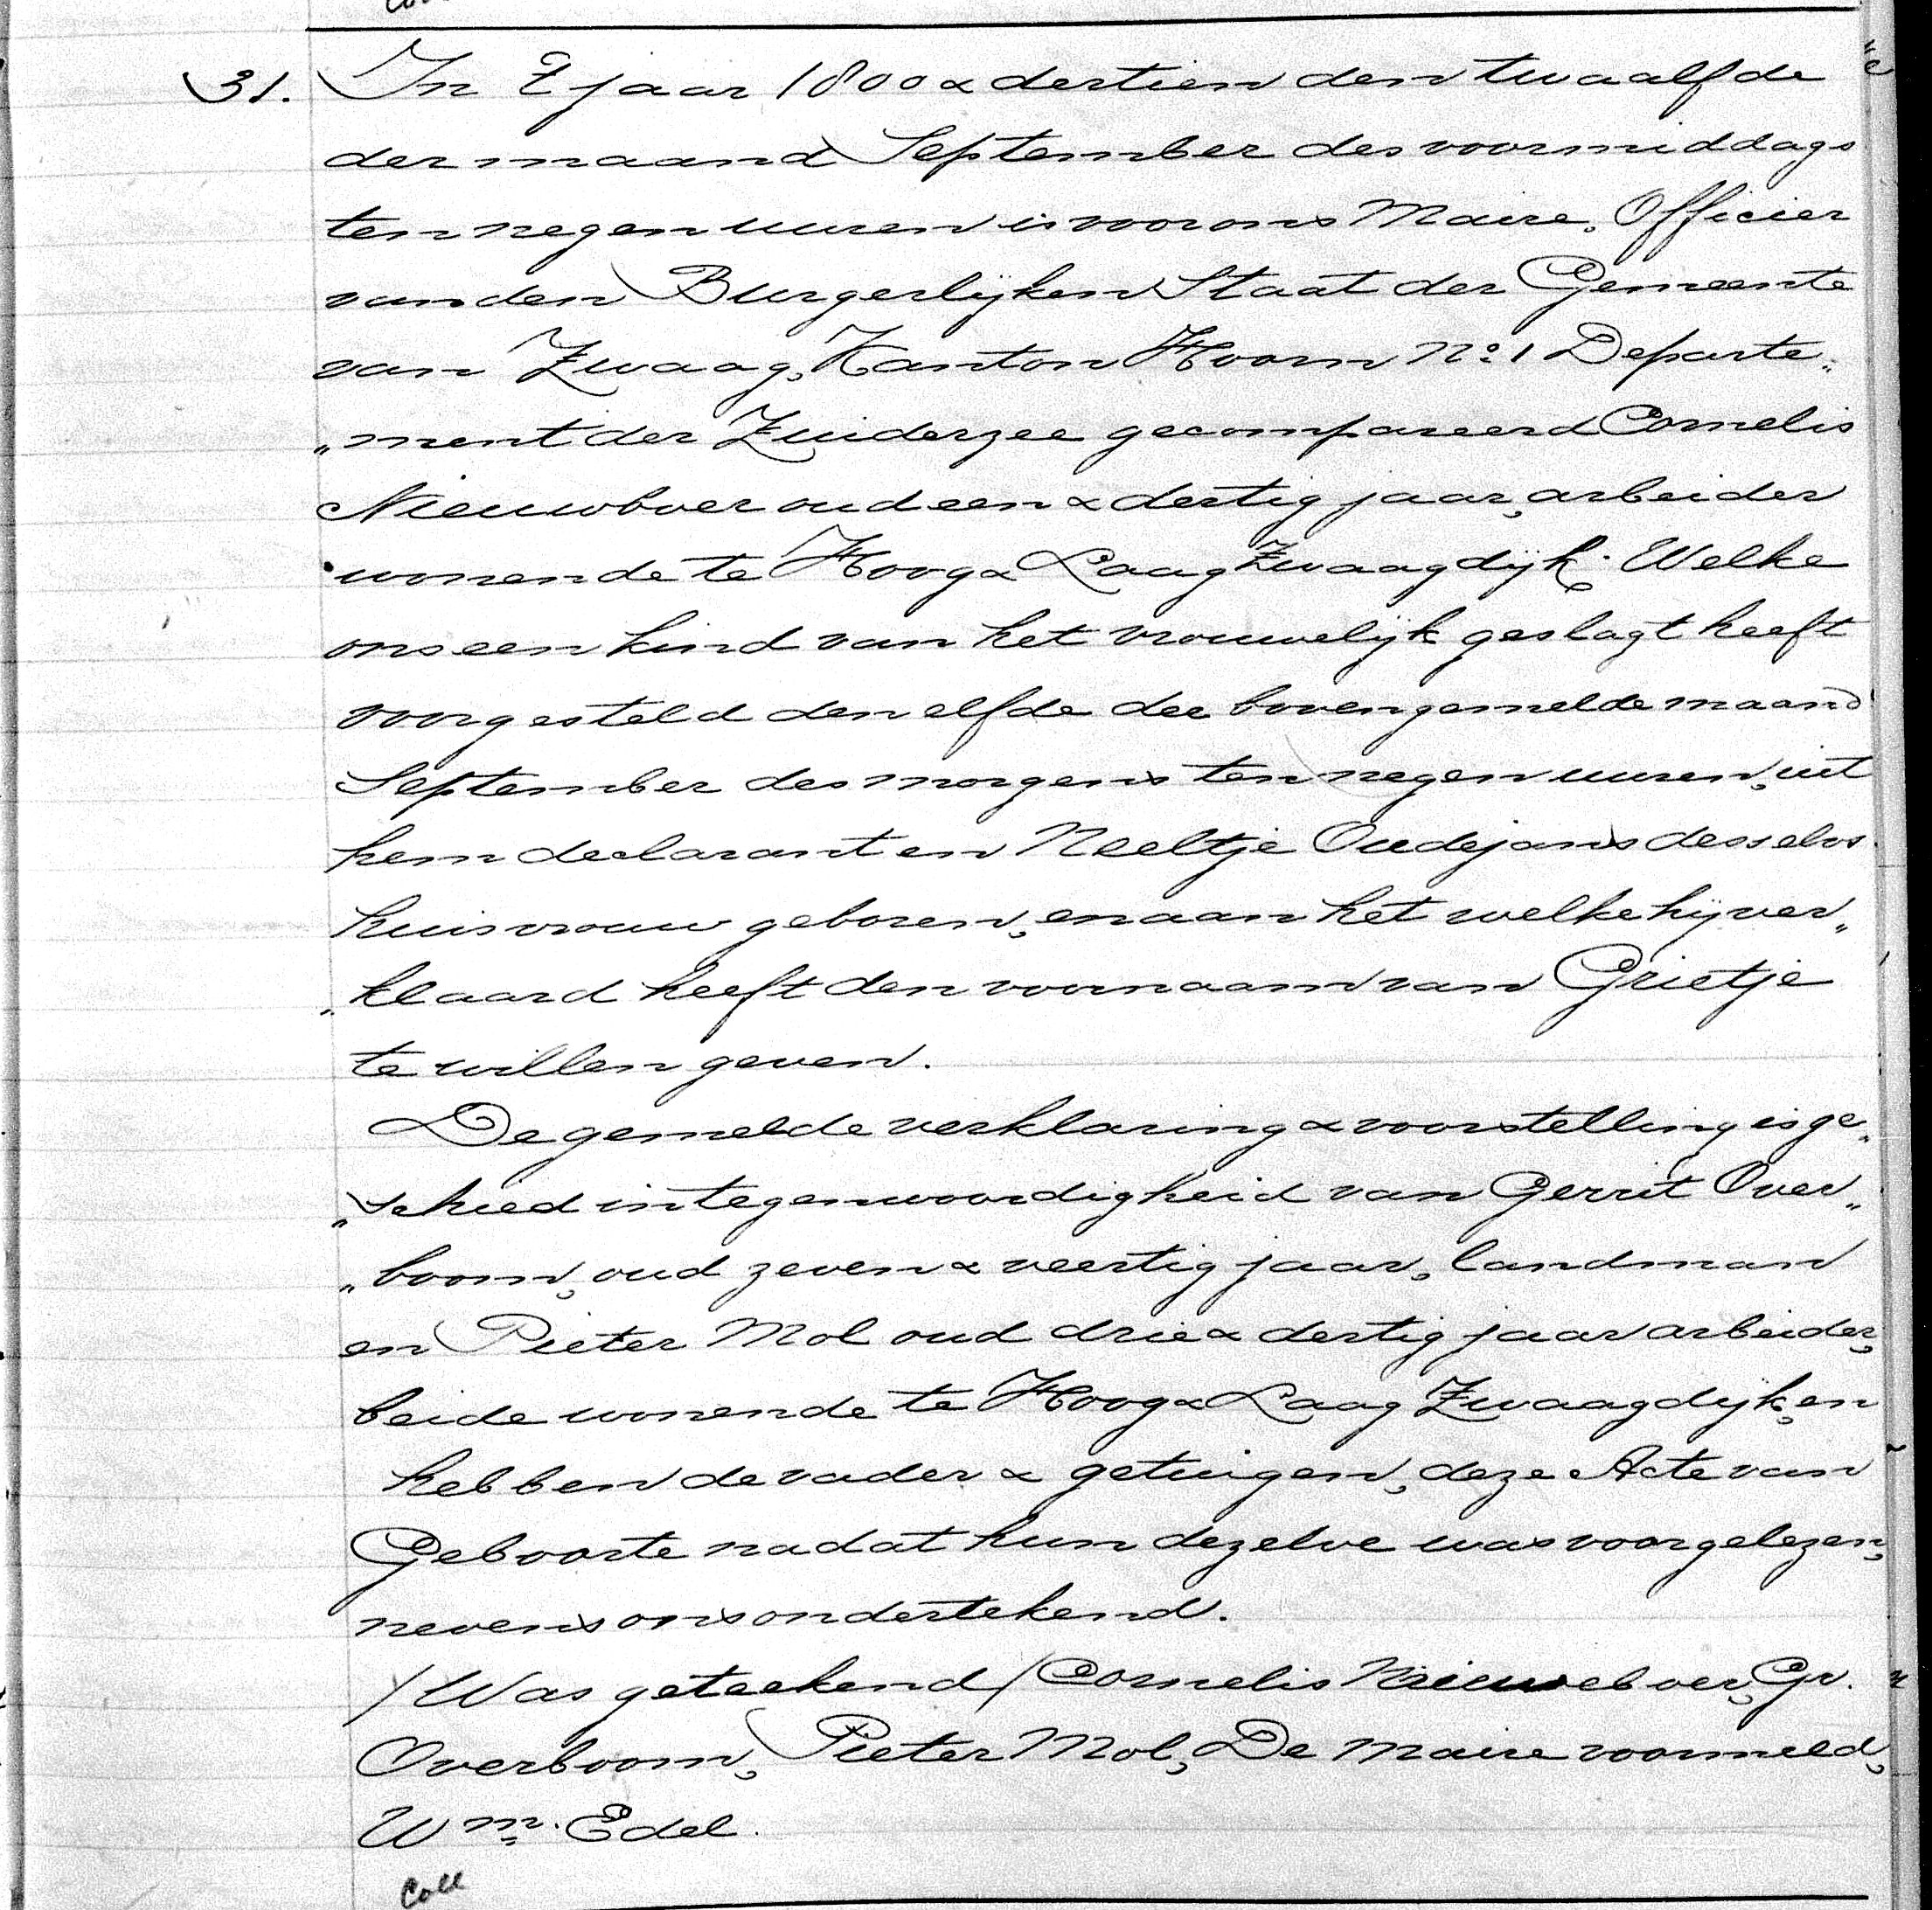 31. In 't jaar 1800 & dertien den twaalfde
der maand September des voormiddags
ten negen uuren is voor ons Maire, Officier
van den Burgerlijken Staat der Gemeente
van Zwaag, Kanton Hoorn No: 1 Departe„
„ment der Zuiderzee gecompareerd Cornelis
Nieuwboer oud een & dertig jaar, arbeider
wonende te Hoog & Laag Zwaagdijk. Welke
ons een kind van het vrouwelijk geslagt heeft
voorgesteld den elfde der bovengemelde maand
September des morgens ten negen uuren, uit
hem declarant en Neeltje Oudejans desselvs
huisvrouw geboren, en aan het welke hij ver„
„klaard heeft den voornaam van Grietje
te willen geven.
De gemelde verklaring & voorstelling is ge„
„schied in tegenwoordigheid van Gerrit Over„
„boom, oud zeven & veertig jaar, landman
en Pieter Mol oud drie & dertig jaar arbeider,
beide wonende te Hoog & Laag Zwaagdijk, en
hebben de vader & getuigen, deze Acte van
Geboorte nadat hun dezelve was voorgelezen,
nevens ons ondertekend.
/Was geteekend/ Cornelis Nieuweboer, Gr.
Overboom, Pieter Mol, De maire voormeld,
Wm. Edel.
Coll